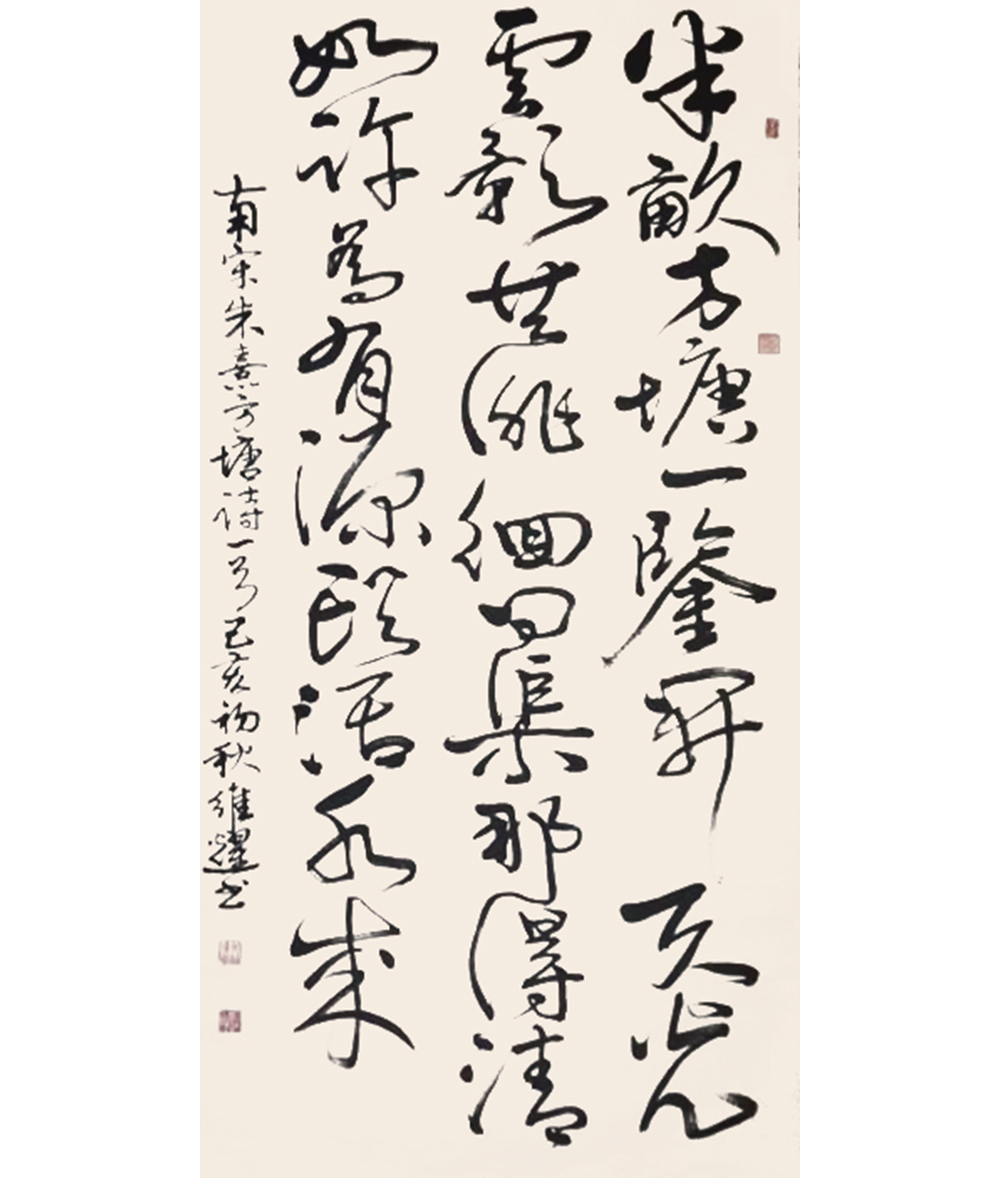 半畝方塘一鑒開天光
雲影共徘徊問渠那得清
如許為有源頭活水來
南宋朱熹方塘詩一首己亥初秋維耀書